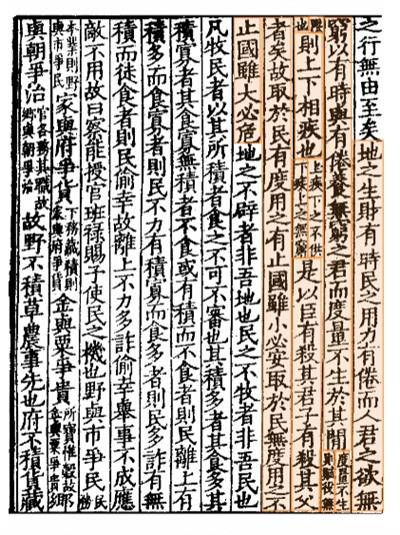 之行無由至矣地之生財有時民之用力有倦而人君之欲無
窮以有時與有倦養無窮之君而度量不生於其間度量不生則賦役無
限也則上下相疾也上疾下之不供下疾上之無窮是以臣有殺其君子有殺其父
者矣故取於民有度用之有止國雖小必安取於民無度用之不
止國雖大必危地之不辟者非吾地也民之不牧者非吾民也
凡牧民者以其所積者食之不可不審也其積多者其食多其
積寡者其食寡無積者不食或有積而不食者則民離上有
積多而食寡者則民不力有積寡而食多者則民多詐有無
積而徒食者則民偷幸故離上不力多詐偷幸舉事不成應
敵不用故曰察能授官班祿賜予使民之機也野與市爭民民務
本業則野與市爭民家與府爭貨下務藏積則家與府爭貨金與粟爭貴所寶惟穀故金與粟爭貴鄉
與朝爭治官各務其職故鄉與朝爭治故野不積草農事先也府不積貨藏